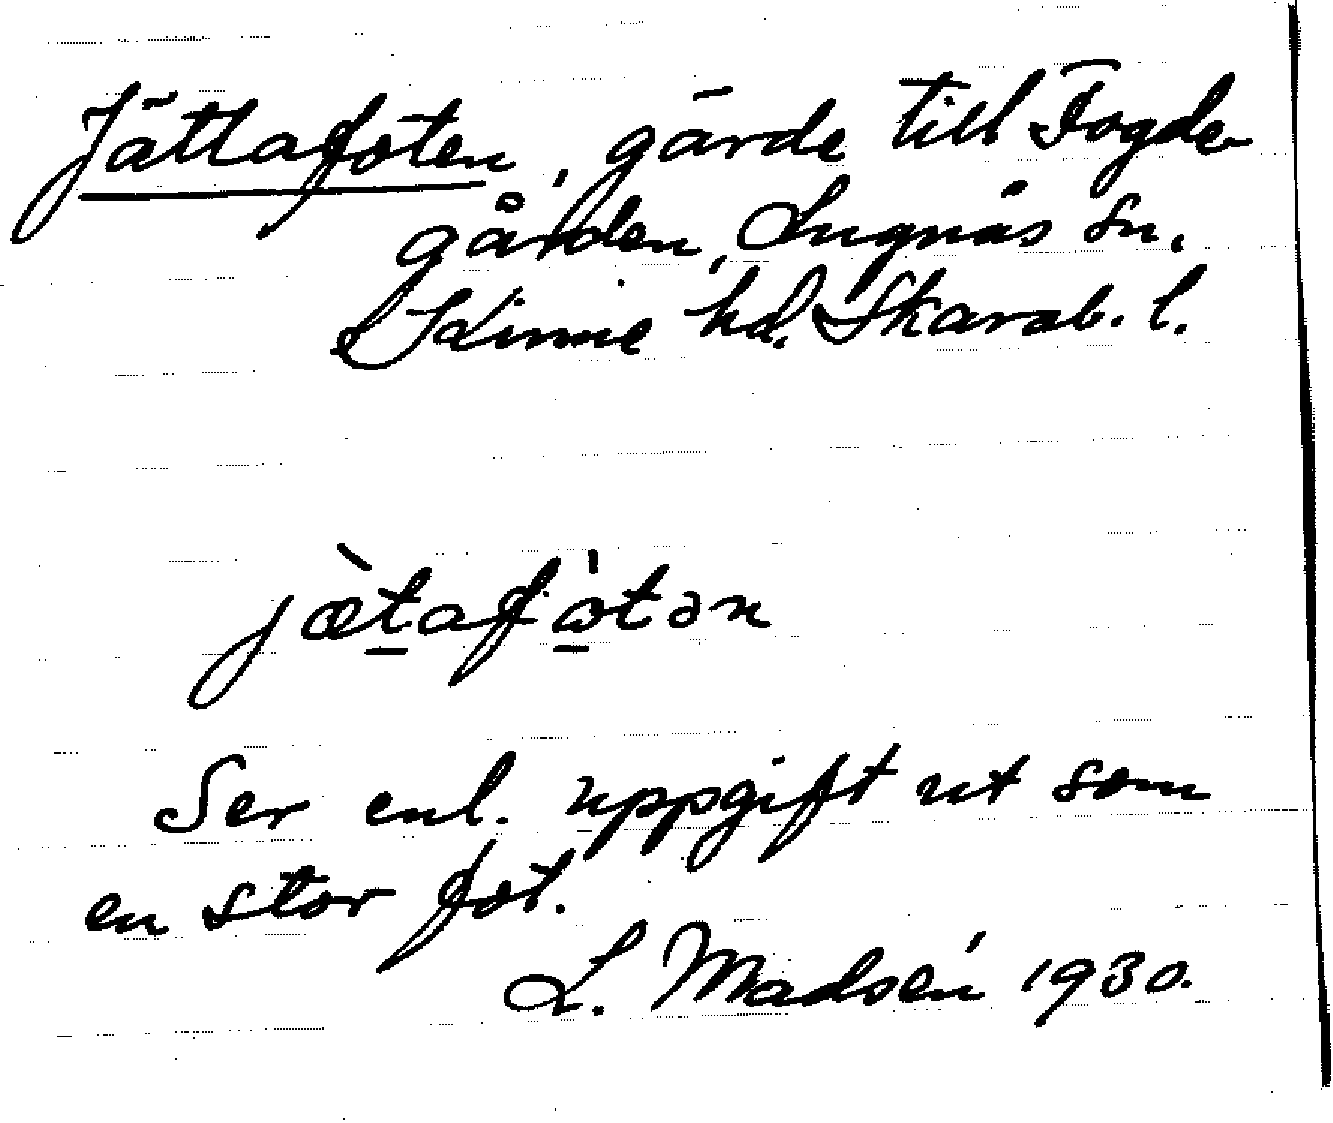 Jättafoten, gärde till Fogde-
gården, Lugnås sn.
Kinne hd. Skarab. l.
jæ̀ta fⱥ̍tən
Ser enl. uppgift ut som
en stor fot.
L. Madsén 1930.